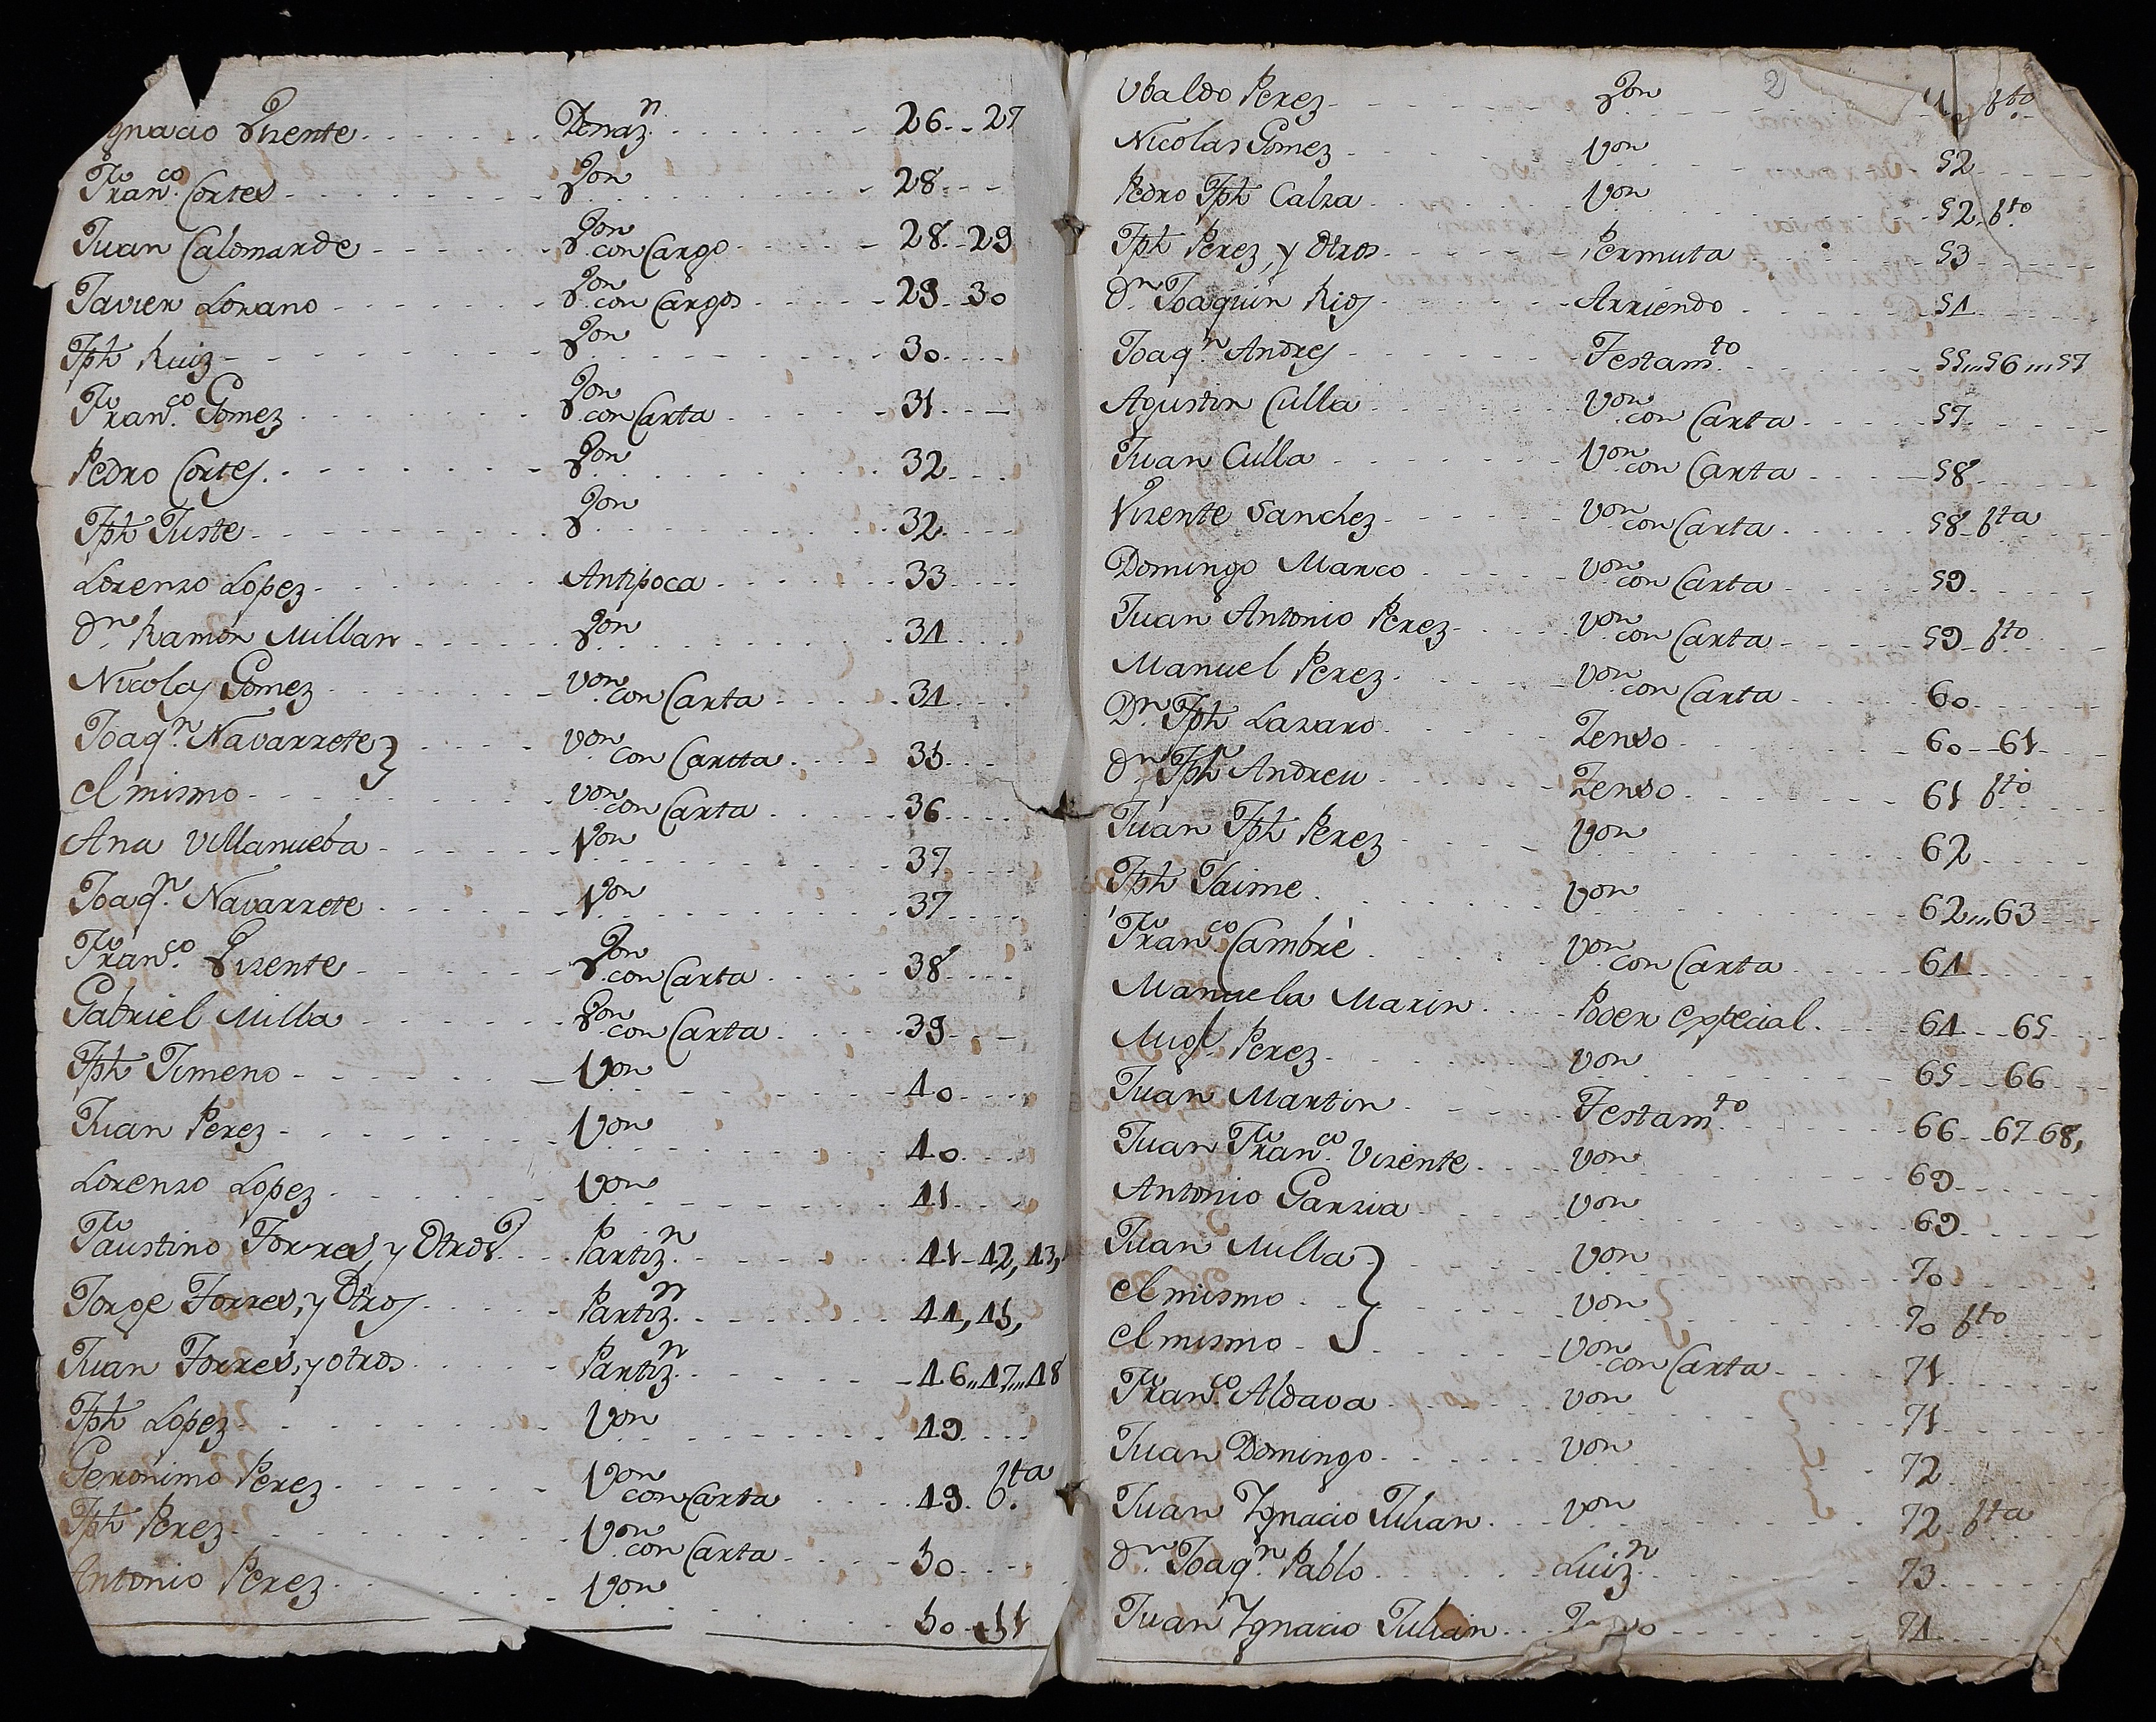 Ygnacio Vizente Donaz.n 26 - 27
Fran.co Cortes Von 28
Juan Calomarde Von con Cargo 28 - 29
Javier Lozano Von con Cargos 29 - 30
Jph Ruiz Von 30
Fran.co Gomez Von con Carta 31
Pedro Cortes. Von 32
Jph Juste Von 32
Lorenzo Lopez Antipoca 33
Dn Ramon Millan Von 34
Nicolas Gomez Von con Carta 34
Joaq.n Navarrete } Von con Cartta 35
el mismo Von con Carta 36
Ana Villanueba Von 37
Joaq.n Navarrete Von 37
Fran.co Vizente Von con Carta 38
Gabriel Milla Von con Carta 39
Jph Jimeno Von 40
Juan Perez Von 40
Lorenzo Lopez Von 41
Faustino Torres, y Otros Partiz.n 41 - 42, 43,
Jorge Torres, y Otros Partiz.n 44, 45,
Juan Torres, y otros Partiz.n 46,, 47,,, 48
Jph Lopez Von 49
Geronimo Perez Von con Carta 49. bta
Jph Perez Von con Carta 50
Antonio Perez Von 50 - 51
2
Vbaldo Perez Von bto
Nicolas Gomez Von 52
Pedro Jph Calza Von 52 bto
Jph Perez, y Otros Permuta 53
Dn Joaquin Rios Arriendo 54
Joaq.n Andres Testam.to 55,,, 56,,, 57
Agustin Culla Von con Carta 57
Juan Culla Von con Carta 58
Vizente Sanchez Von con Carta 58 bta
Domingo Marco Von con Carta 59
Juan Antonio Perez Von con Carta 59 bto
Manuel Perez Von con Carta 60
Dn Jph Lazaro Zenso 60 - 61
Dn Jph Andreu Zenso 61 bto
Juan Jph Perez Von 62
Jph Jaime Von 62,,, 63
Fran.co Cambrè Von con Carta 64
Manuela Marin Poder espeical. 64 - 65
Migl. Perez Von 65 - 66
Juan Martin Testam.to 66 - 67 - 68,
Juan Fran.co Vizente Von 69
Antonio Garzia Von 69
Juan Milla } Von 70
el mismo Von 70 bto
el mismo Von con Carta 71
Fran.co Aldava Von 71
Juan Domingo Von 72
Juan Ygnacio Julian Von 72 bta
Dn Joaq.n Pablo Luiz.n 73
Juan Ygnacio Julian 74